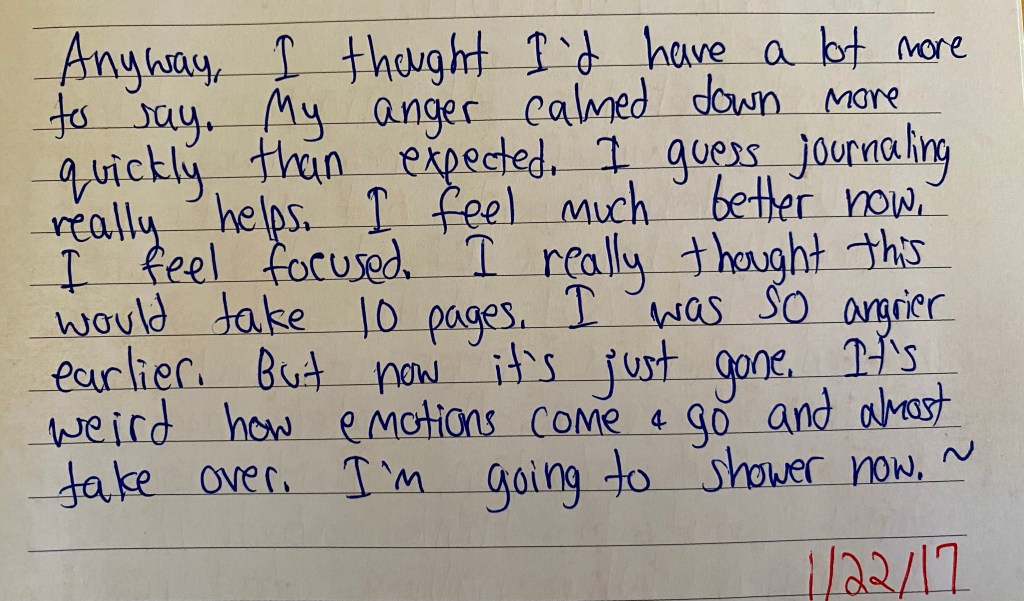 Anyway, I thought I'd have a lot more
to say. My anger calmed down more
quickly than expected. I guess journaling
really helps. I feel much better now.
I feel focused. I really thought this
would take 10 pages. I was SO angrier
earlier. But now it's just gone. It's
weird how emotions come & go and almost
take over. I'm going to shower now. ~
1/22/17